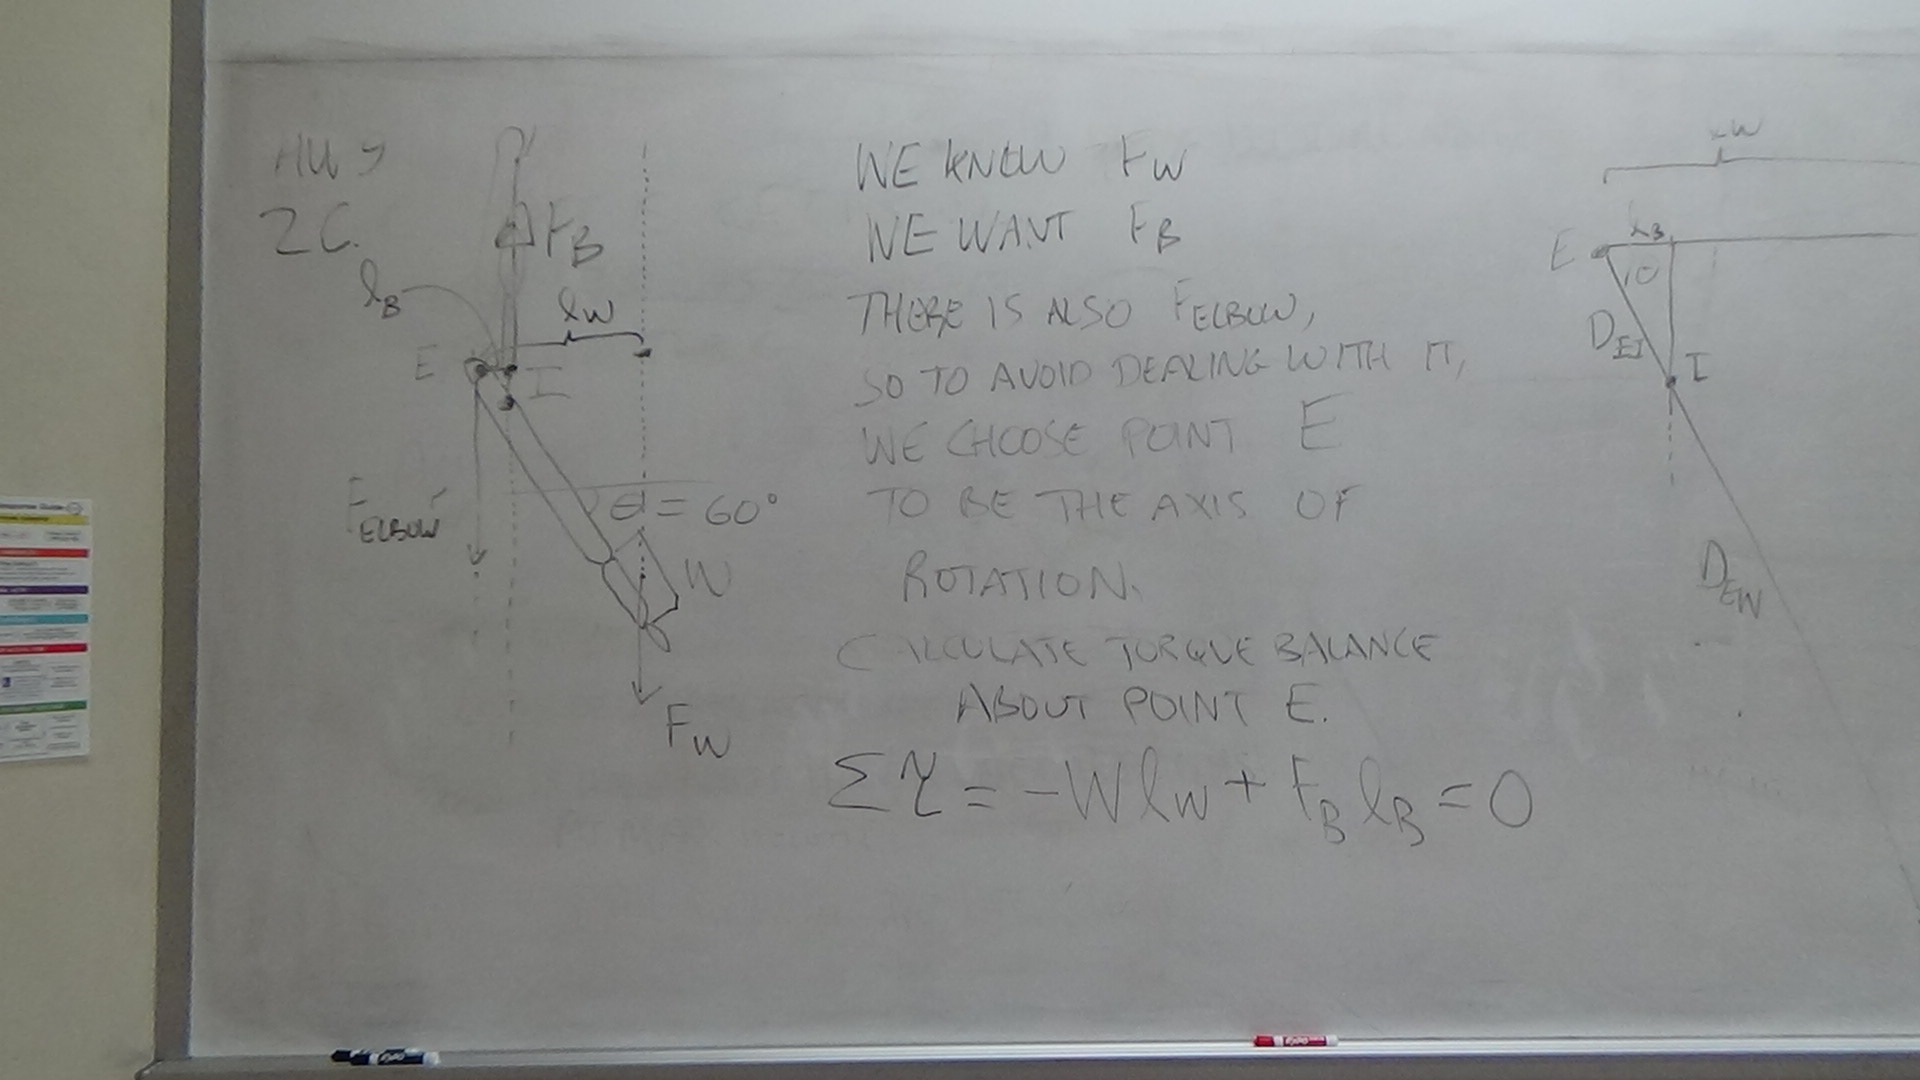 HW 5
2C.
F_B
l_B
l_W
E
I
F_ELBOW
θ = 60°
W
F_W
WE KNOW F_W
WE WANT F_B
THERE IS ALSO F_ELBOW,
SO TO AVOID DEALING WITH IT,
WE CHOOSE POINT E
TO BE THE AXIS OF
ROTATION.
CALCULATE TORQUE BALANCE
ABOUT POINT E.
Στ = -Wl_W + F_B l_B = 0
l_W
l_B
E
D_EI
I
D_EW